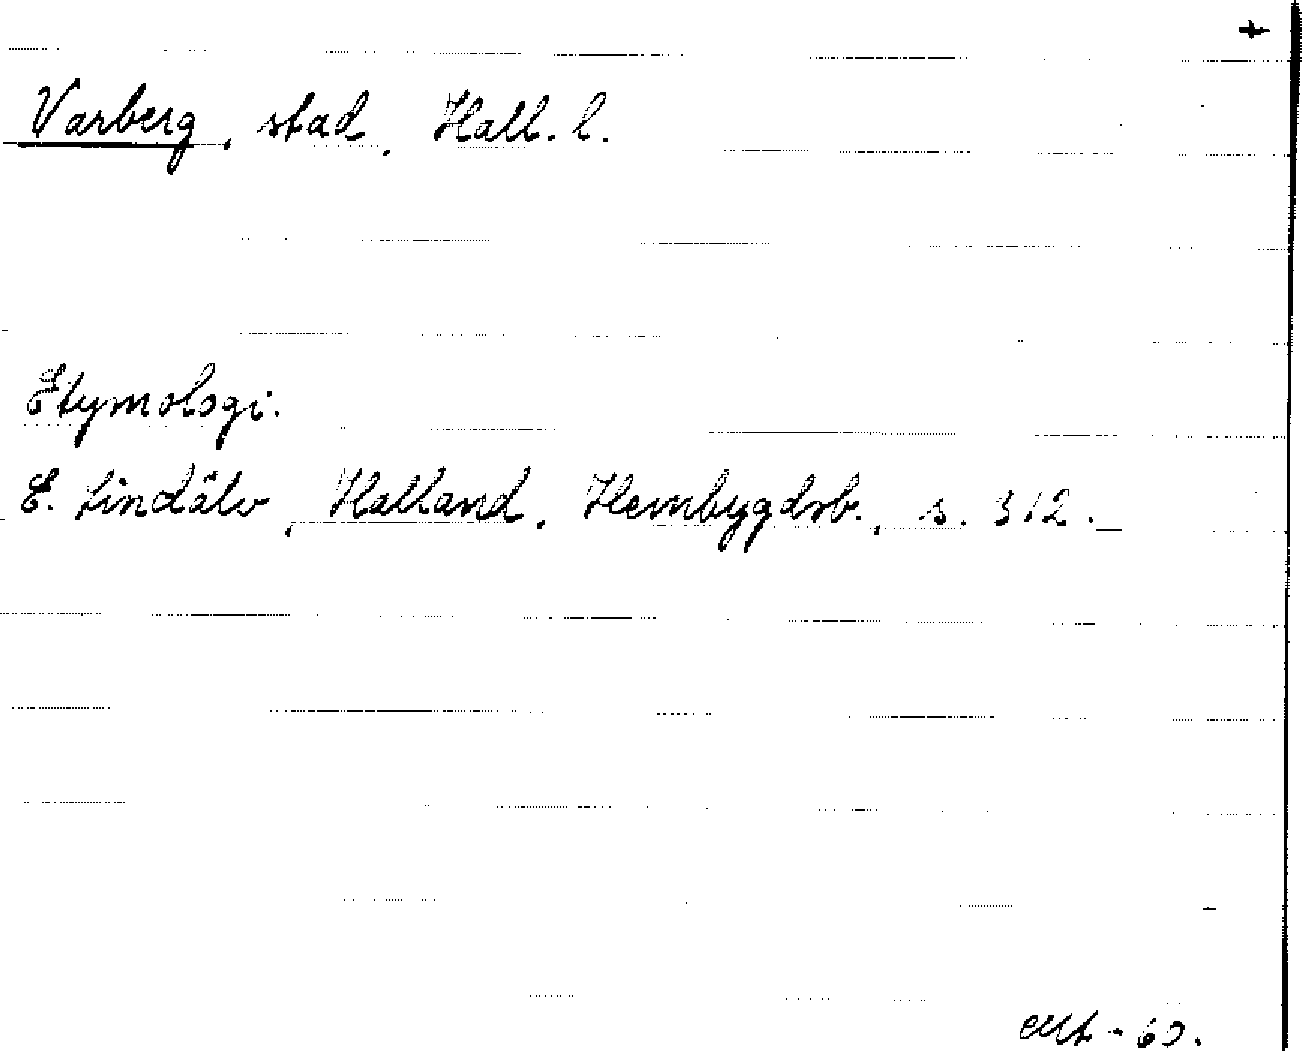 +
Varberg, stad, Hall. l.
Etymologi.
E. Lindälv, Halland, Hembygdsb., s. 312.
-60.